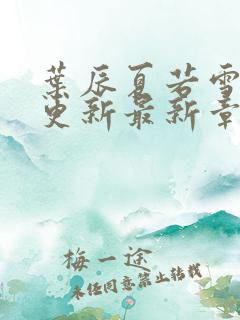 葉辰夏若雪
更新最新章
梅一途
未经同意禁止转载